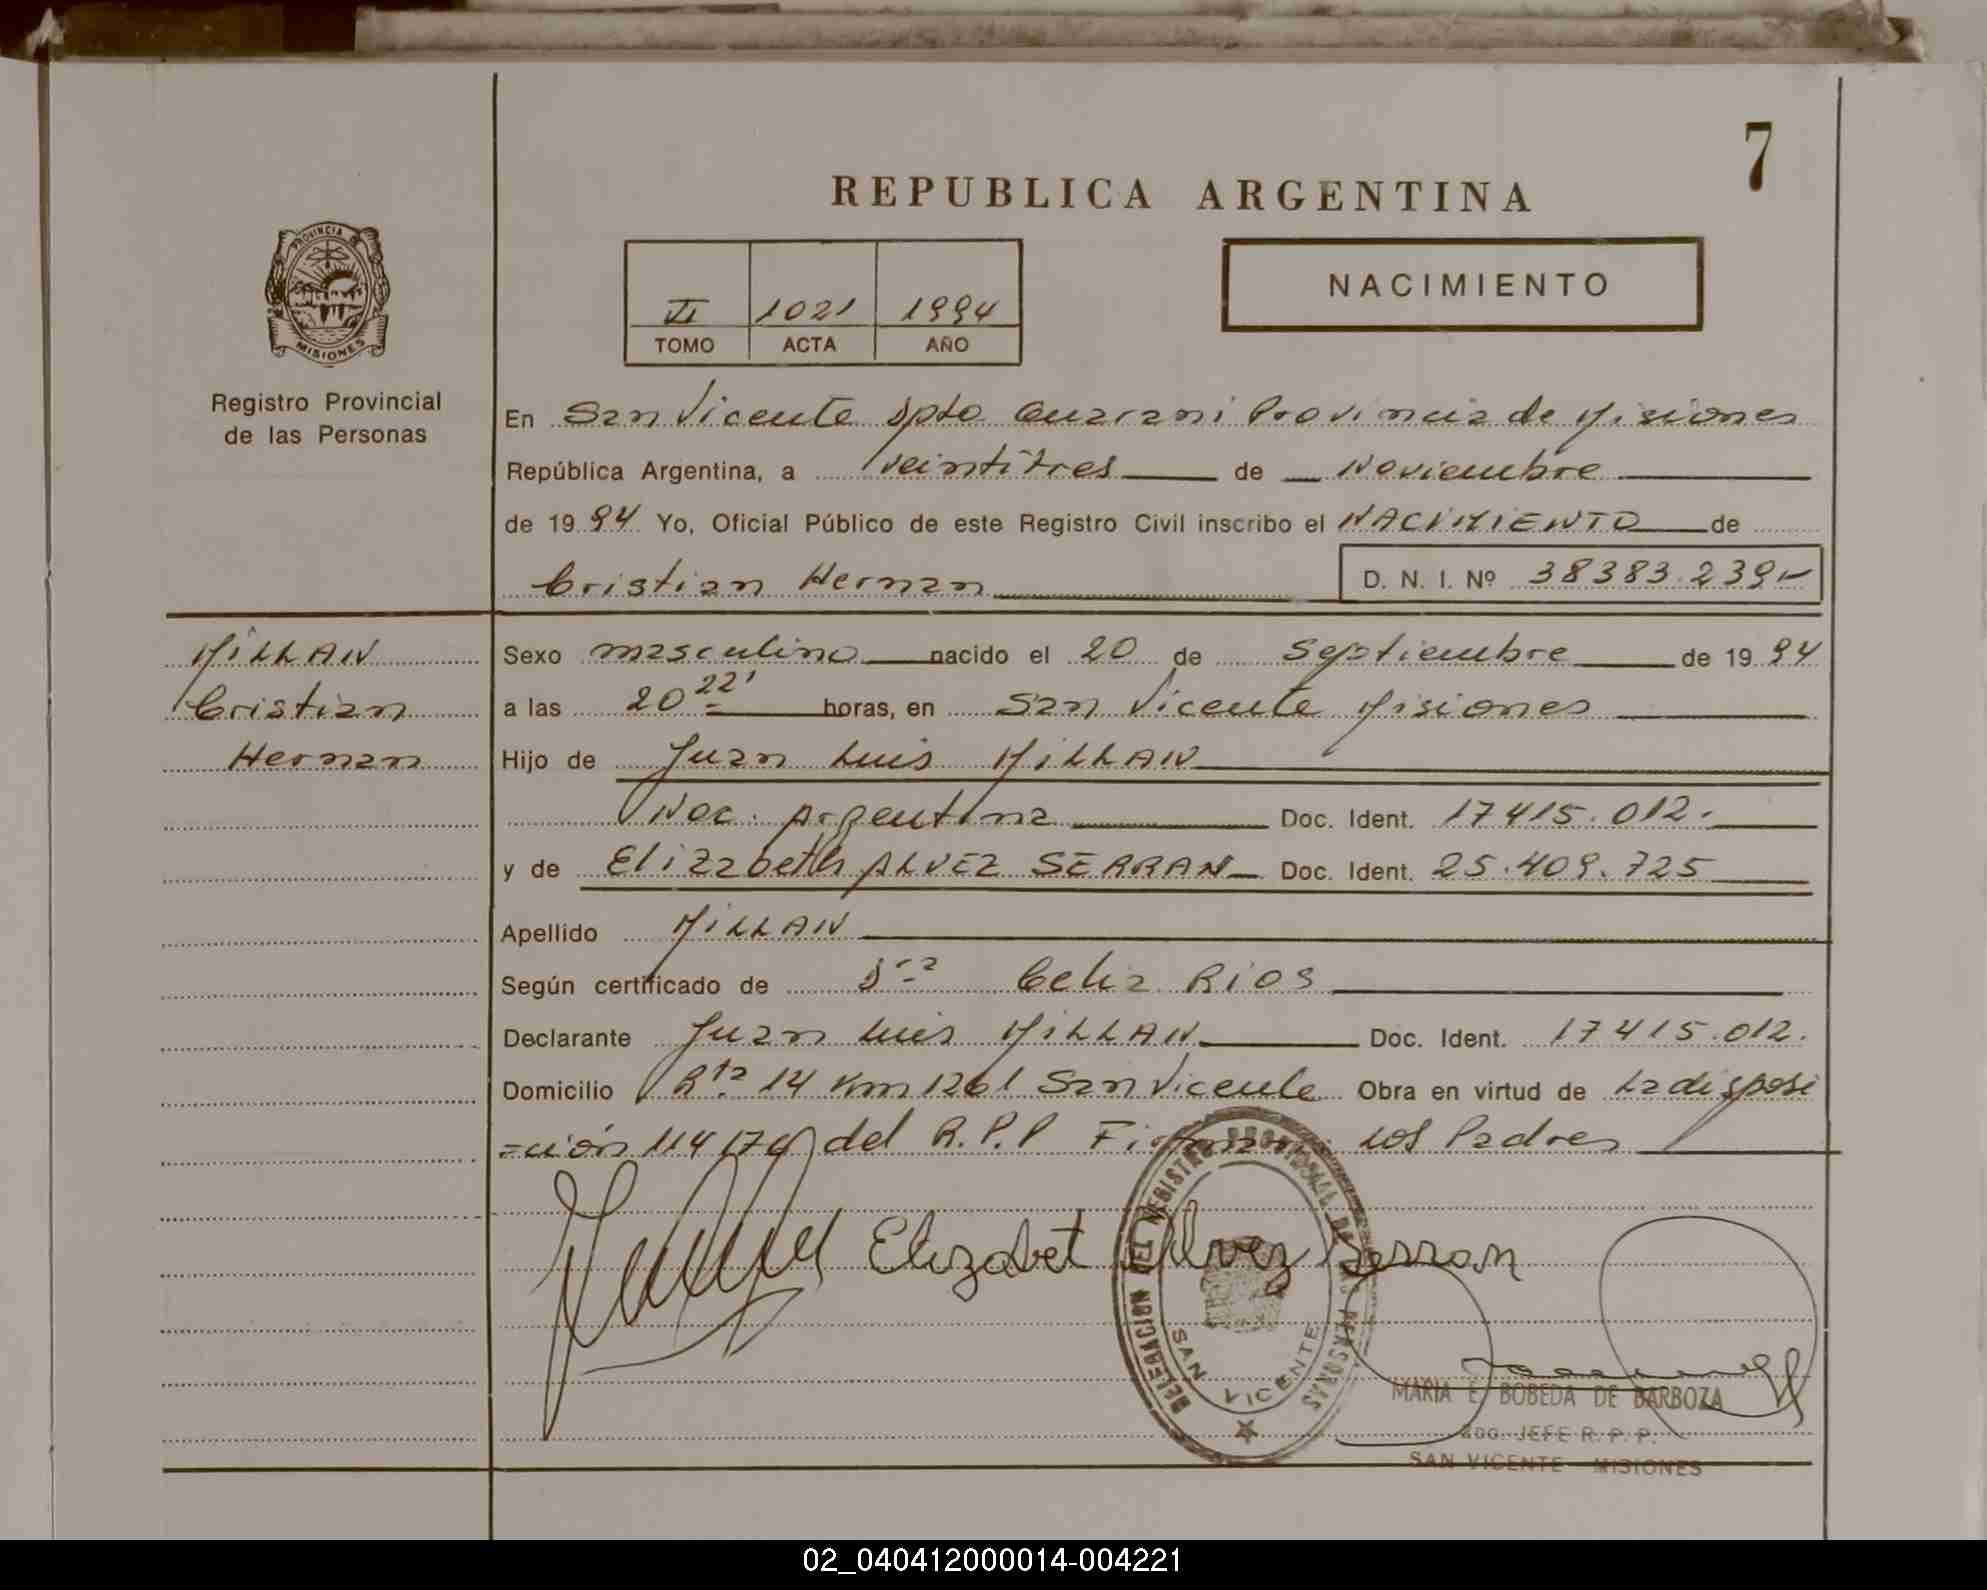 7
REPUBLICA ARGENTINA
PROVINCIA DE
MISIONES
Registro Provincial
de las Personas
VI 1021 1994
TOMO ACTA AÑO
NACIMIENTO
En San Vicente Dpto Guarani Provincia de Misiones
República Argentina, a veintitres de Noviembre
de 1994 Yo, Oficial Público de este Registro Civil inscribo el NACIMIENTO de
Cristian Hernan D. N. I. Nº 38383.239
MILLAN
Cristian
Hernan
Sexo masculino nacido el 20 de Septiembre de 1994
a las 20 22' horas, en San Vicente Misiones
Hijo de Juan Luis MILLAN
Nac. Argentina Doc. Ident. 17415.012.
y de Elizabeth ALVEZ SERRAN Doc. Ident. 25.409.725
Apellido MILLAN
Según certificado de Dra Celia Rios
Declarante Juan Luis MILLAN Doc. Ident. 17415.012.
Domicilio Rta 14 Km 1261 San Vicente Obra en virtud de La disposi
=ción 114/79 del R.P.P Firman: Los Padres
Elizabet Alvez Serran
DELEGACION DEL REGISTRO PROVINCIAL DE LAS PERSONAS
SAN VICENTE
MARIA E. BOBEDA DE BARBOZA
2DO. JEFE R. P. P.
SAN VICENTE MISIONES
02_040412000014-004221